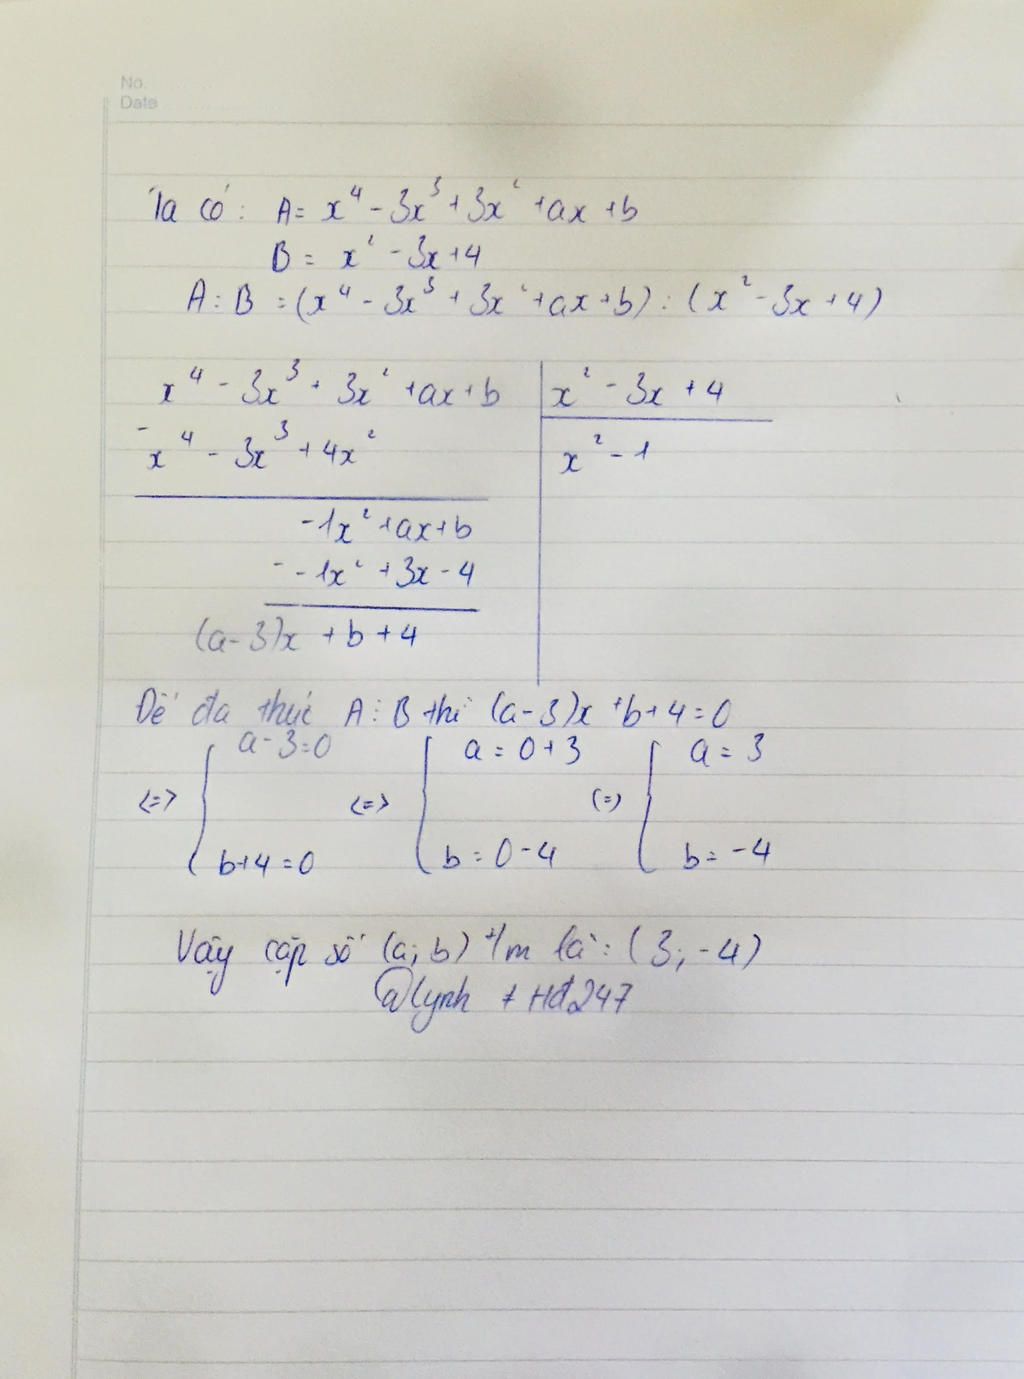 No.
Date
Ta có: A= x⁴ - 3x³ + 3x² + ax + b
B = x² - 3x + 4
A : B = (x⁴ - 3x³ + 3x² + ax + b) : (x² - 3x + 4)
x⁴ - 3x³ + 3x² + ax + b | x² - 3x + 4
- x⁴ - 3x³ + 4x² | x² - 1
-1x² + ax + b
- -1x² + 3x - 4
(a-3)x + b + 4
Để đa thức A ⋮ B thì (a-3)x + b + 4 = 0
<=> { a - 3 = 0 <=> { a = 0 + 3 (=) { a = 3
b + 4 = 0 b = 0 - 4 b = -4
Vậy cặp số (a; b) t/m là: (3; -4)